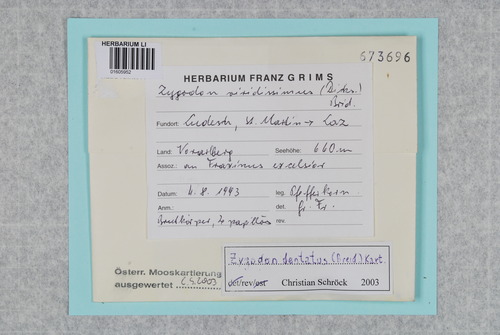 HERBARIUM LI
01605952
673696
HERBARIUM FRANZ GRIMS
Zygodon viridissimus (Dicks.)
Brid.
Fundort: Ludesch, St. Martin → Laz
Land: Vorarlberg Seehöhe: 660 m
Assoz.: an Fraxinus excelsior
Datum: 4. 8. 1993 leg. Pfefferkorn
Anm.: det. Gr. Fr.
Brutkörper, papillös rev.
Zygodon dentatus (Breid.) Kart.
det/rev/est Christian Schröck 2003
Österr. Mooskartierung
ausgewertet 2003